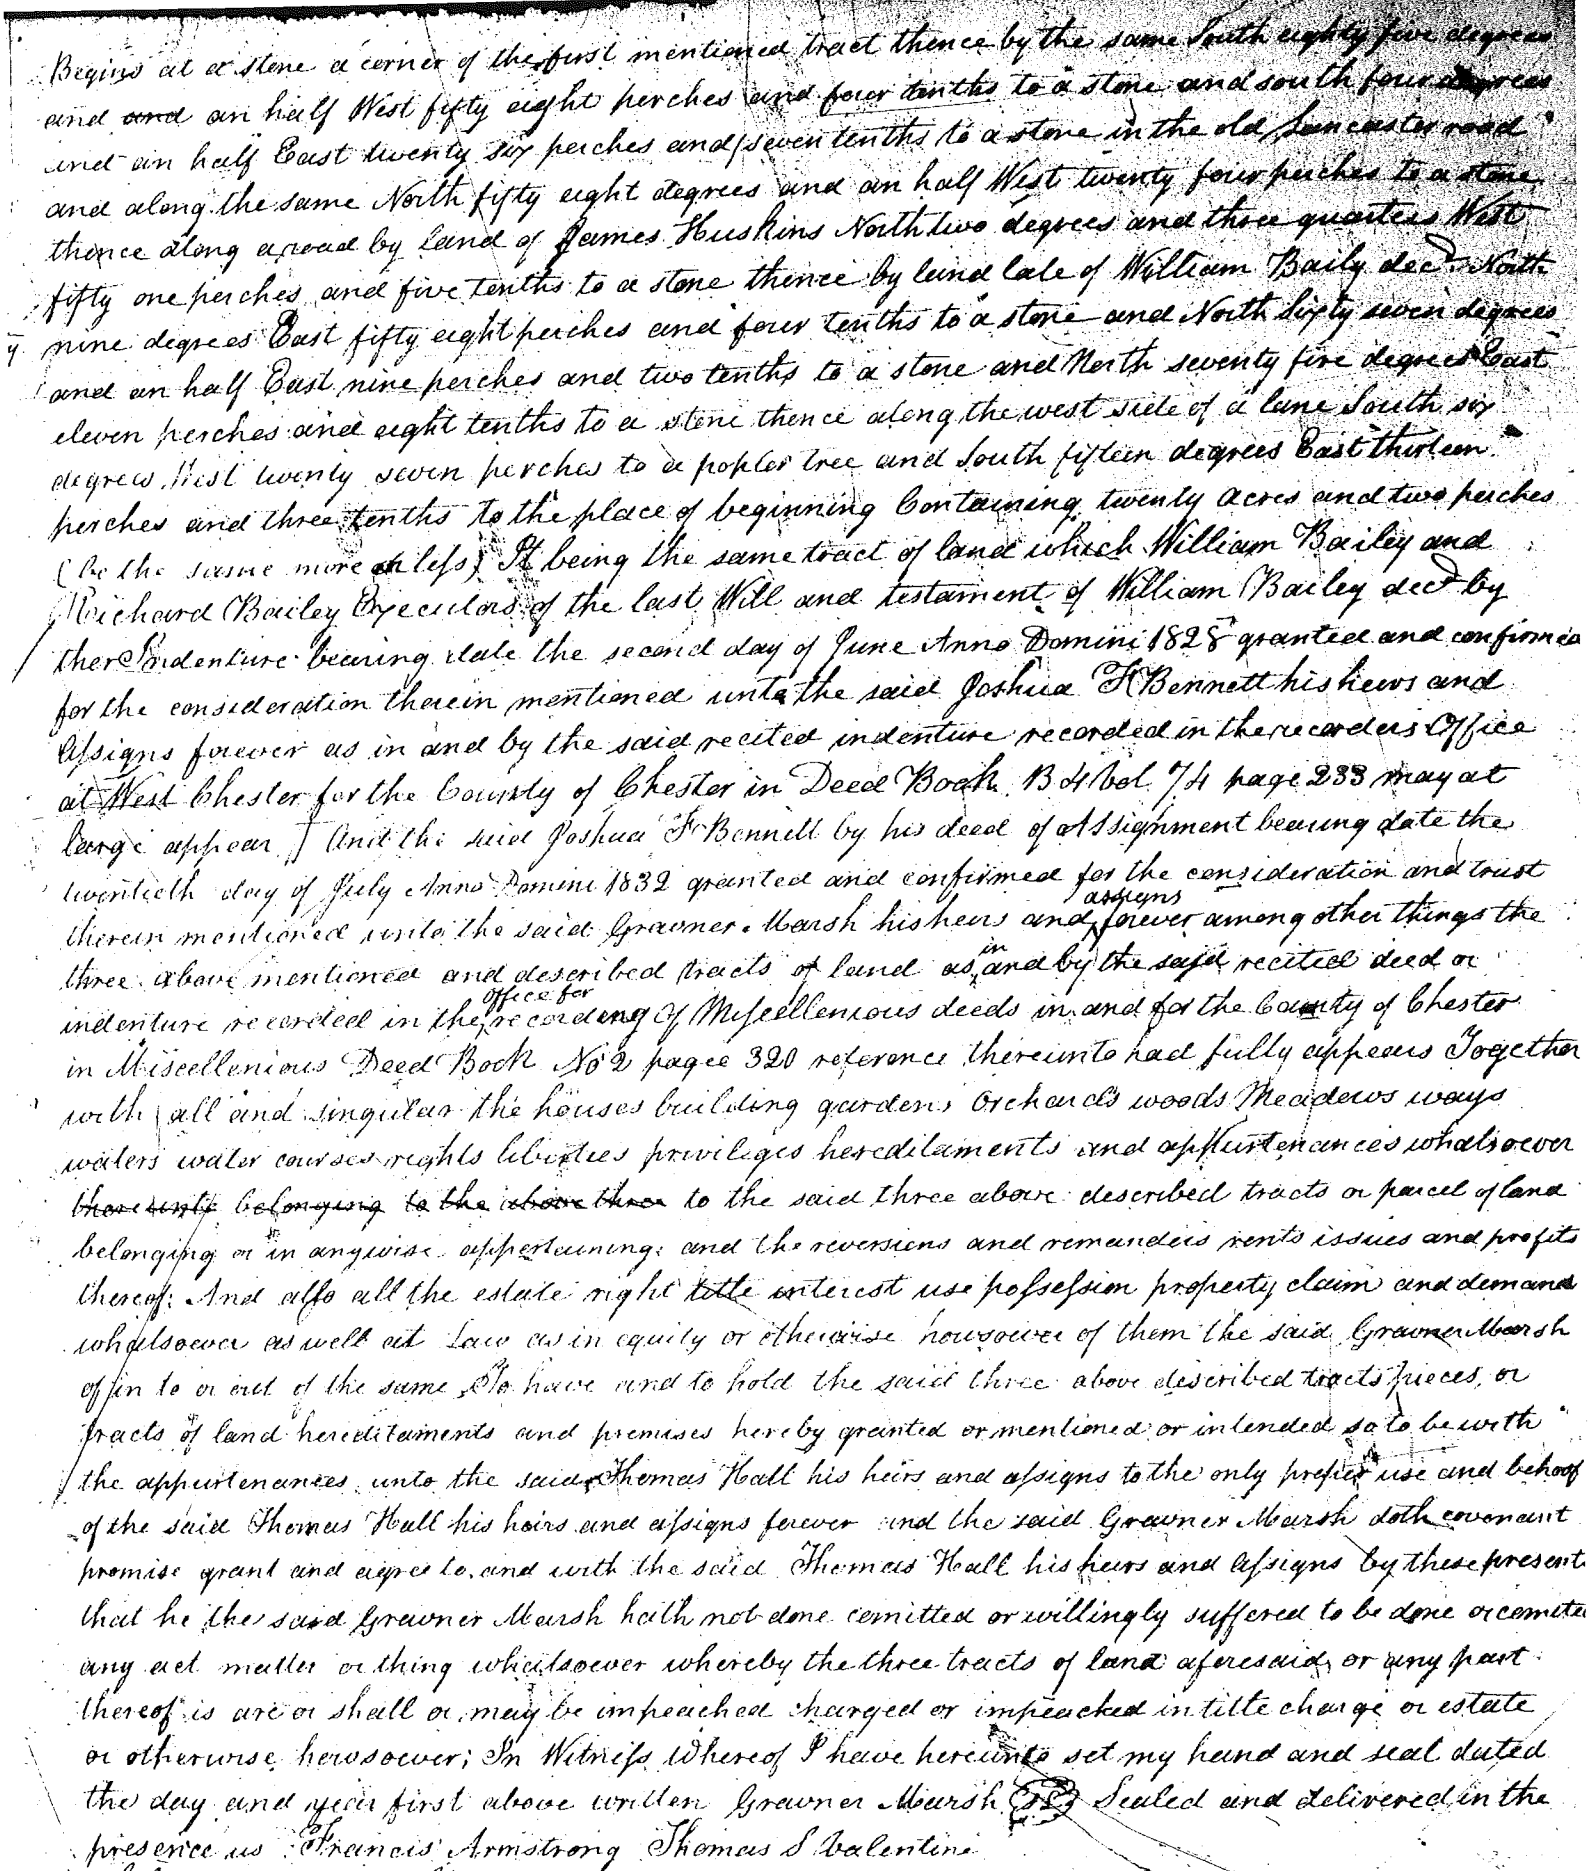 Begins at a stone a corner of the first mentioned tract thence by the same South eighty five degrees
and and an half West fifty eight perches and four tenths to a stone and south four degrees
and an half East twenty six perches and seven tenths to a stone in the old Lancaster road
and along the same North fifty eight degrees and an half West twenty four perches to a stone
thence along a road by land of James Huskins North two degrees and three quarters West
fifty one perches and five tenths to a stone thence by land late of William Baily decd North
nine degrees East fifty eight perches and four tenths to a stone and North Sixty seven degrees
and an half East nine perches and two tenths to a stone and North seventy five degrees East
eleven perches and eight tenths to a stone thence along the west side of a lane South six
degrees West twenty seven perches to a poplor tree and South fifteen degrees East thirteen
perches and three tenths to the place of beginning Containing twenty acres and two perches
(be the same more or less) It being the same tract of land which William Bailey and
Richard Bailey Executors of the last Will and testament of William Bailey decd by
ther Indenture bearing date the second day of June Anno Domini 1828 granted and confirmed
for the consideration therein mentioned unto the said Joshua F Bennett his heirs and
assigns forever as in and by the said recited indenture recorded in the recorders Office
at West Chester for the County of Chester in Deed Book B 4 Vol 74 page 233 may at
large appear] And the said Joshua F Bennett by his deed of Assignment bearing date the
twentieth day of July Anno Domini 1832 granted and confirmed for the consideration and trust
therein mentioned unto the said Gravner Marsh his heirs and assigns forever among other things the
three above mentioned and described tracts of land as in and by the said recited deed or
indenture recorded in the office for recording of Miscellenious deeds in and for the County of Chester
in Miscellenious Deed Book No 2 pagee 320 reference thereunto had fully appears Together
with all and singular the houses building gardens Orchards woods Meadows ways
waters water courses rights liberties privileges hereditaments and appurtenances whatsoever
thereunto belonging to the above three to the said three above described tracts or parcel of land
belonging or in anywise appertaining: and the reversions and remanders rents issues and profits
thereof: And also all the estate right title interest use possession property claim and demand
whatsoever as well at Law as in equity or otherwise howsoever of them the said Gravner Marsh
of in to or out of the same To have and to hold the said three above described tracts pieces, or
tracts of land hereditaments and premises hereby granted or mentioned or intended so to be with
the appurtenances unto the said Thomas Hall his heirs and assigns to the only proper use and behoof
of the said Thomas Hall his heirs and assigns forever and the said Gravner Marsh doth covenant
promise grant and agree to and with the said Thomas Hall his heirs and assigns by these present
that he the said Gravner Marsh hath not done comitted or willingly suffered to be done or comited
any act matter or thing whatsoever whereby the three tracts of land aforesaid, or any part
thereof is are or shall or may be impeached charged or impeached in title charge or estate
or otherwise howsoever; In Witness Whereof I have hereunto set my hand and seal dated
the day and year first above written Gravner Marsh Sealed and delivered in the
presence us Francis Armstrong Thomas S Valentine